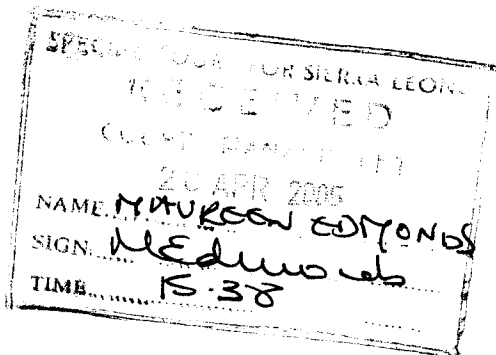 SPECIAL COURT FOR SIERRA LEONE
RECEIVED
COURT MANAGEMENT
20 APR 2005
NAME MAUREEN EDMONDS
SIGN MEdmonds
TIME 15.38